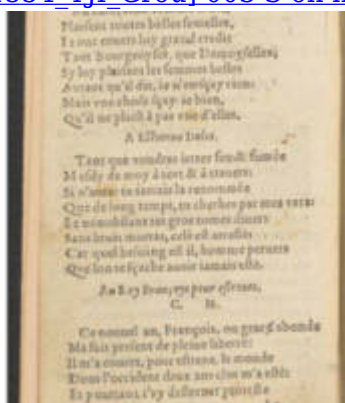 Plaisent toutes belles femelles,
Et ont envers luy grand credit
Tant Bourgeoyses, que Damoyselles;
Sy luy plaisent les femmes belles
Autant qu'il dit, je n'en sçay riens:
Mais une chose sçay-je bien,
Qu'il ne plaist à pas une d'elles.
A Estienne Dolet.
Tant que voudras jetter feu & fumée
Mesdy de moy à tort & à travers:
Si n'auras tu jamais la renommée
Que de long temps, tu cherches par mes vers:
Et nonobstant tes gros tomes divers
Sans bruit mourras, cela est arresté:
Car quel besoing est il, homme pervers
Que l'on te sçache avoir jamais esté.
Au Roy pour estrenes,
C. M.
Ce nouvel an, François, ou grace abonde
Ma fait present de pleine liberté:
Il m'a ouvert, pour estrene, le monde
Dont l'occident deux ans clos m'a esté:
Et pourtant j'ay